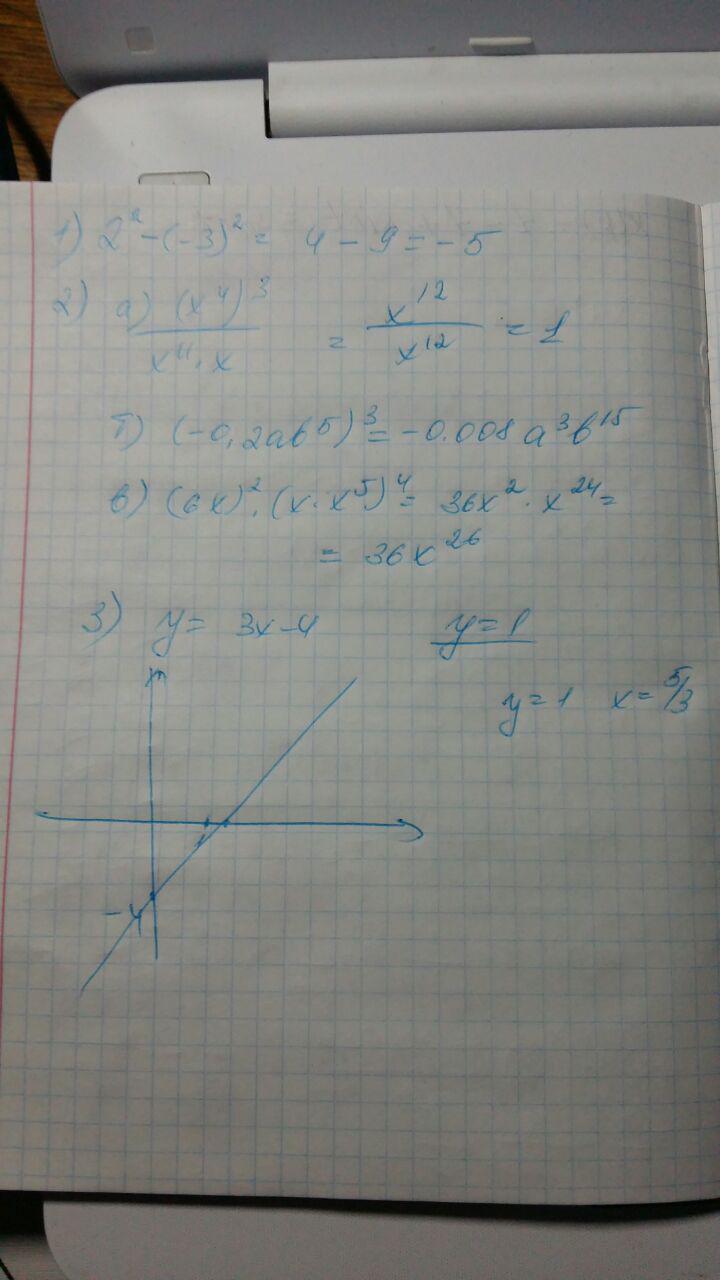 1) 2² - (-3)² = 4 - 9 = -5
2) а) (x⁴)³ / x¹¹ · x = x¹² / x¹² = 1
б) (-0,2ab⁵)³ = -0.008 a³b¹⁵
в) (6x)² · (x · x⁵)⁴ = 36x² · x²⁴ =
= 36x²⁶
3) y = 3x - 4 y = 1
y = 1 x = 5/3
-4